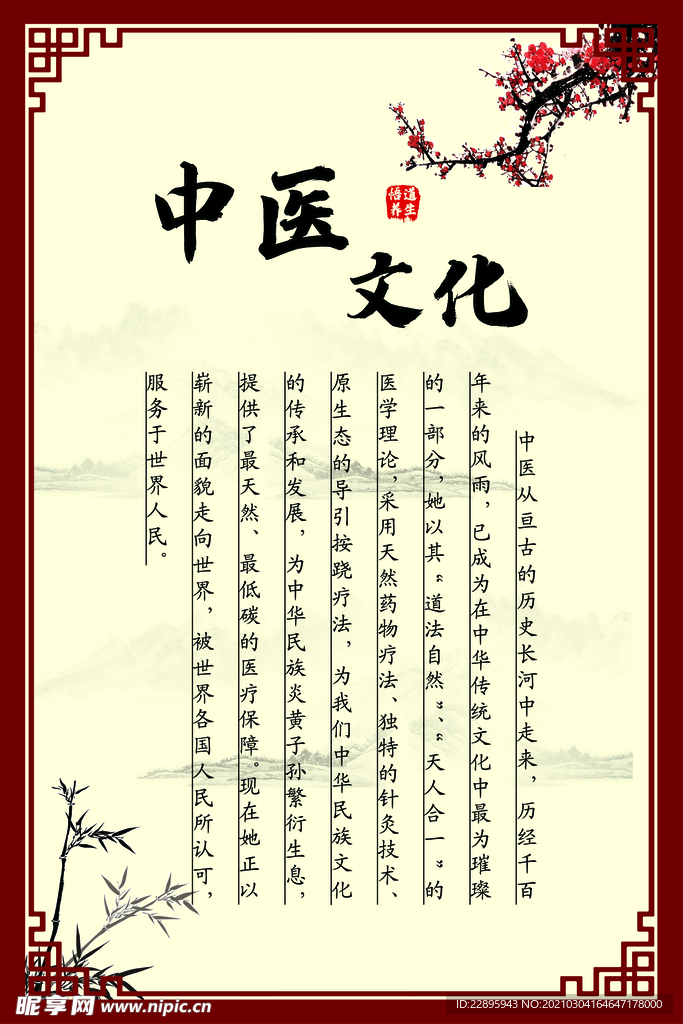 中医
文化
悟道
养生
中医从亘古的历史长河中走来，历经千百
年来的风雨，已成为在中华传统文化中最为璀璨
的一部分，她以其“道法自然”、“天人合一”的
医学理论，采用天然药物疗法、独特的针灸技术、
原生态的导引按跷疗法，为我们中华民族文化
的传承和发展，为中华民族炎黄子孙繁衍生息，
提供了最天然、最低碳的医疗保障。现在她正以
崭新的面貌走向世界，被世界各国人民所认可，
服务于世界人民。
昵享网 www.nipic.cn
ID:22895943 NO:20210304164647178000